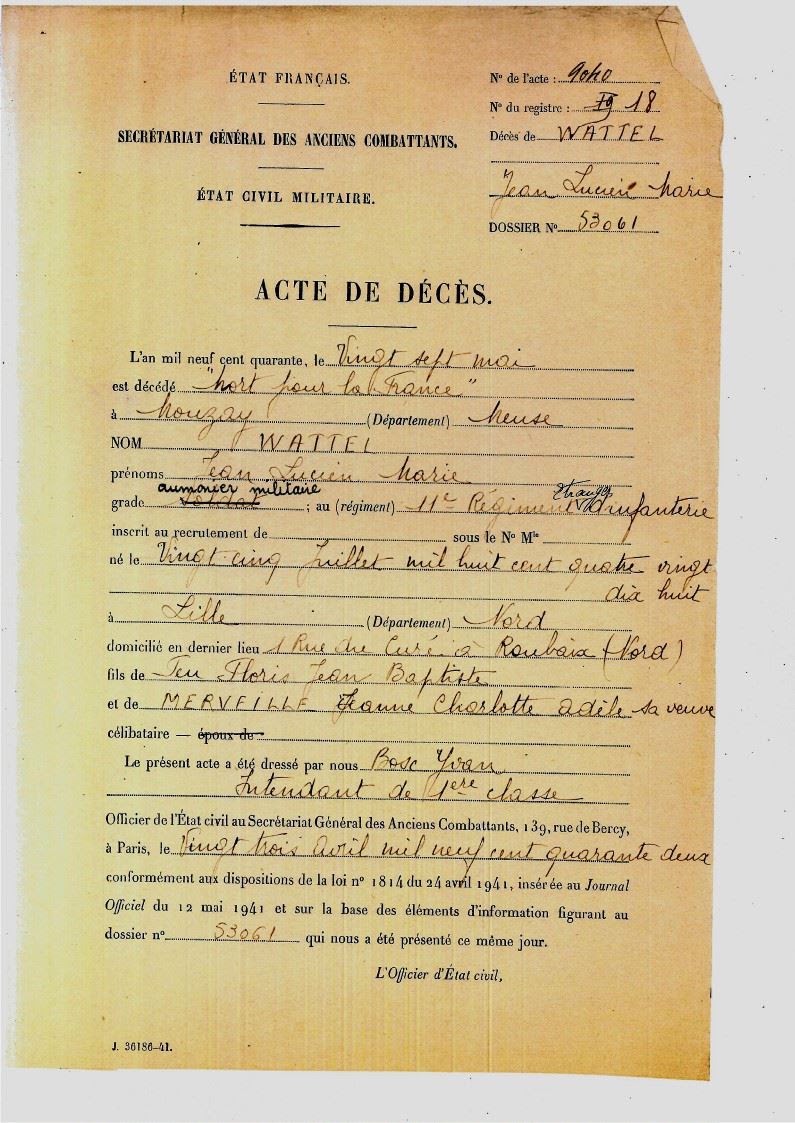 ÉTAT FRANÇAIS.
SECRÉTARIAT GÉNÉRAL DES ANCIENS COMBATTANTS.
ÉTAT CIVIL MILITAIRE.
N° de l'acte :
N° du registre : 18
Décès de WATTEL
Jean Lucien Marie
DOSSIER N° 53061
ACTE DE DÉCÈS.
L'an mil neuf cent quarante, le Vingt sept mai
est décédé "Mort pour la France"
à Mouzay (Département) Meuse
NOM WATTEL
prénoms Jean Lucien Marie
aumonier militaire
grade Soldat ; au (régiment) 11e Régiment Etranger d'infanterie
inscrit au recrutement de sous le N° Mle
né le Vingt cinq Juillet mil huit cent quatre vingt
dix huit
à Lille (Département) Nord
domicilié en dernier lieu 1 Rue du Curé à Roubaix (Nord)
fils de Feu Floris Jean Baptiste
et de MERVEILLE Jeanne Charlotte Adèle sa veuve
célibataire — époux de
Le présent acte a été dressé par nous Bosc Yvan
Intendant de 1ère classe
Officier de l'État civil au Secrétariat Général des Anciens Combattants, 139, rue de Bercy,
à Paris, le Vingt trois Avril mil neuf cent quarante deux
conformément aux dispositions de la loi n° 1814 du 24 avril 1941, insérée au Journal
Officiel du 12 mai 1941 et sur la base des éléments d'information figurant au
dossier n° 53061 qui nous a été présenté ce même jour.
L'Officier d'État civil,
J. 36186-41.